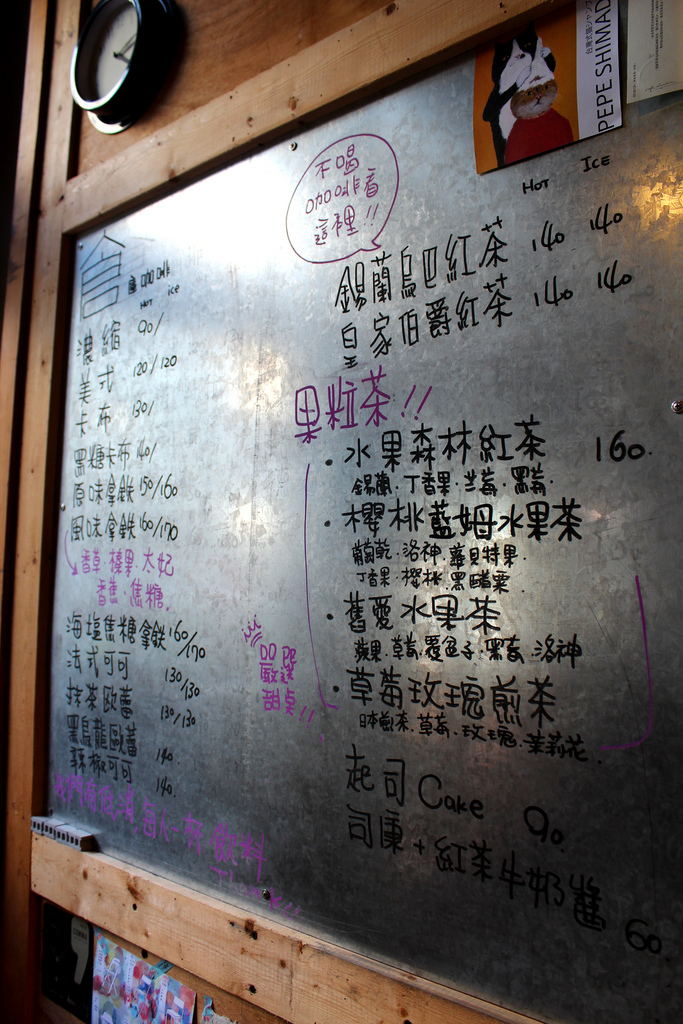 台南式猫ジャンプ
PEPE SHIMAD
不喝
咖啡看
這裡!!
HOT ICE
錫蘭烏巴紅茶 140 140
皇家伯爵紅茶 140 140
倉 咖啡
HOT ice
濃縮 90/
美式 120/120
卡布 130/
黑糖卡布 140/
原味拿鐵 150/160
風味拿鐵 160/170
香草·榛果·太妃
香蕉·焦糖.
海塩焦糖拿鐵 160/170
法式可可 130/130
抹茶歐蕾 130/130
黑烏龍歐蕾 140
辣椒可可 140.
我們有低消,每人一杯飲料
Thank!!
果粒茶!!
·水果森林紅茶 160.
錫蘭·丁香果·草莓·黑莓.
·櫻桃藍姆水果茶
葡萄乾·洛神·蘿貝特果.
丁香果·櫻桃·黑醋栗.
·舊愛水果茶
蘋果·草莓·覆盆子·黑莓·洛神
·草莓玫瑰煎茶
日本煎茶·草莓·玫瑰·茉莉花.
甜桌!!
起司Cake 90.
司康+紅茶牛奶醬 60.